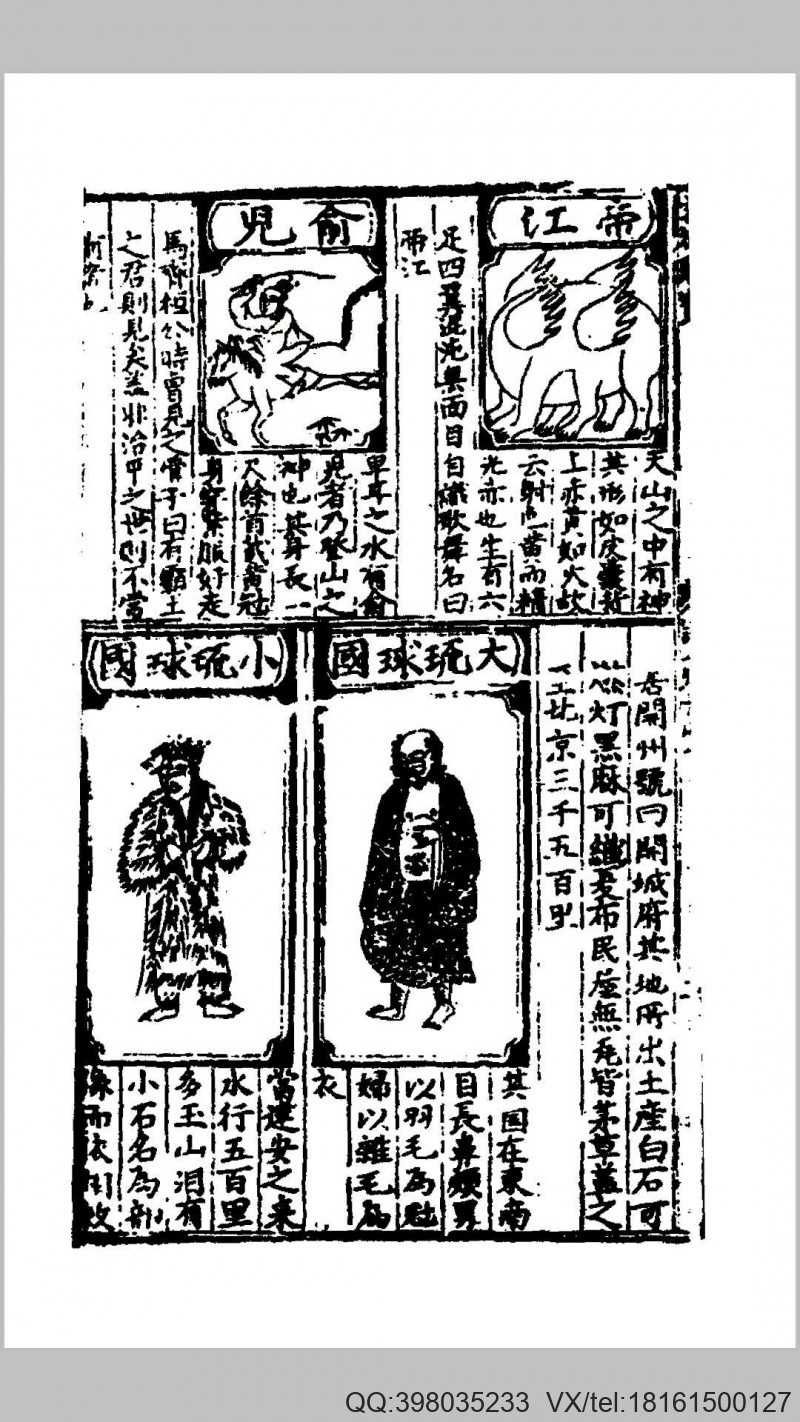 帝江
天山之中有神
其形如皮囊背
上赤黄如火故
云射也苗而精
光赤也生有六
足四翼混沌無面目自識歌舞名曰
帝江
俞兒
卑耳之水有俞
兒者乃登山之
神也其身長一
尺餘首戴黄冠
身穿朱服好走
馬齊桓公時曾見之管子曰有霸王
之君則見矣蓋非治平之世則不當
居開州號曰開城府其地所出土産白石可
以燃灯黑麻可織爲布民屋無瓦皆茅草蓋之
至北京三千五百里
大琉球國
其国在東南
目長鼻類異
以羽毛為
婦以雜毛為
衣
小琉球國
當建安之東
水行五百里
多玉山洞有
小石名為
QQ:398035233 VX/tel:18161500127